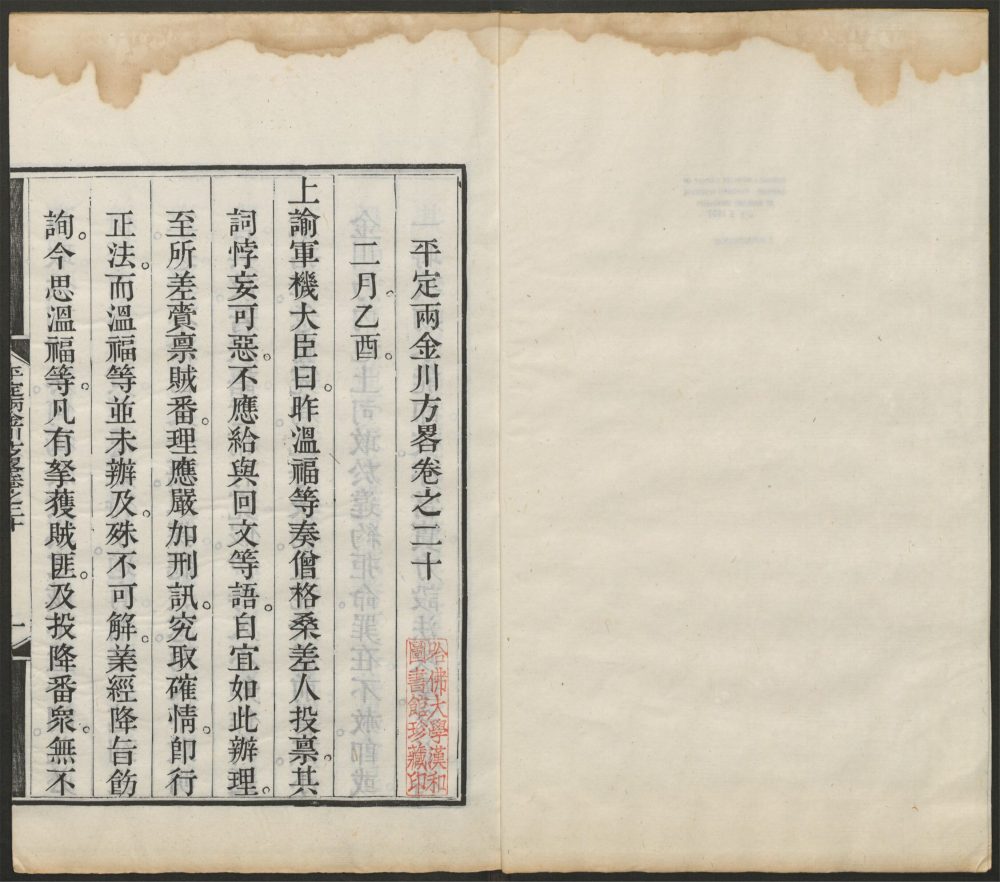 平定兩金川方畧卷之二十
二月乙酉。
上諭軍機大臣曰。昨溫福等奏僧格桑差人投禀。其
詞悖妄可惡。不應給與回文等語。自宜如此辦理。
至所差賫禀賊番。理應嚴加刑訊。究取確情。卽行
正法。而溫福等並未辦及。殊不可解。業經降旨飭
詢。今思溫福等。凡有拏獲賊匪。及投降番衆。無不
平定兩金川方畧卷之二十
一
哈佛大學漢和
圖書館珍藏印